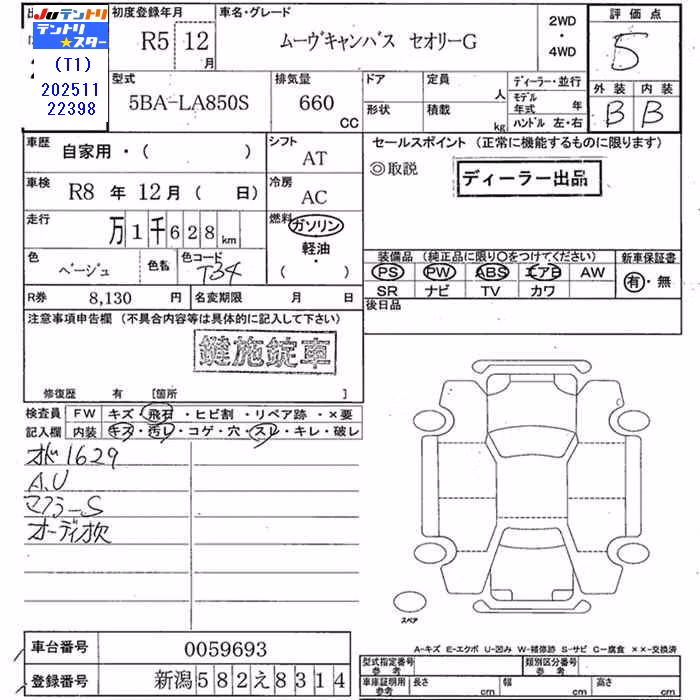 JUテントリ
テントリ★スター
(T1)
202511
22398
初度登録年月
R5 12月
車名・グレード
ムーヴキャンバス セオリーG
2WD
・
4WD
評価点
5
外装 内装
B B
型式
5BA-LA850S
排気量
660 CC
ドア
形状
定員 人
積載 kg
ディーラー・並行
モデル年式 年
ハンドル 左・右
車歴 自家用・( )
シフト AT
車検 R8 年 12 月 ( 日)
冷房 AC
走行 万1千628km
燃料 ガソリン
軽油・
( )
色 ベージュ 色替 色コード T34
R券 8,130 円 名変期限 月 日
セールスポイント (正常に機能するものに限ります)
◎取説
ディーラー出品
装備品 (純正品に限り○をつけてください)
PS PW ABS エアB AW
SR ナビ TV カワ
新車保証書
有・無
後日品
注意事項申告欄 (不具合内容等は具体的に記入して下さい)
鍵施錠車
修復歴 有 [箇所 ]
検査員 FW キズ・飛石・ヒビ割・リペア跡・×要
記入欄 内装 キズ・汚レ・コゲ・穴・スレ・キレ・破レ
オド1629
A,U
マフラーS
オーディオ欠
スペア
A-キズ E-エクボ U-凹み W-補修跡 S-サビ C-腐食 ××-交換済
車台番号 0059693
登録番号 新潟582え8314
型式指定番号 参考
類別区分番号 参考
車庫証明用 参考 長さ cm 幅 cm 高さ cm